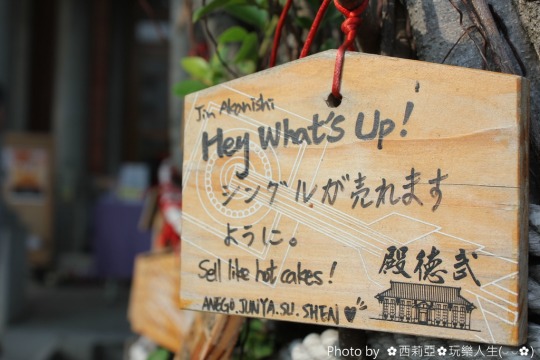 Jin Akanishi
Hey What's Up!
シングルが売れます
ように。
Sell like hot cakes!
ANEGO.JUNYA.SU.SHEN
武德殿
Photo by ✿西莉亞✿玩樂人生(◡‿◡✿)